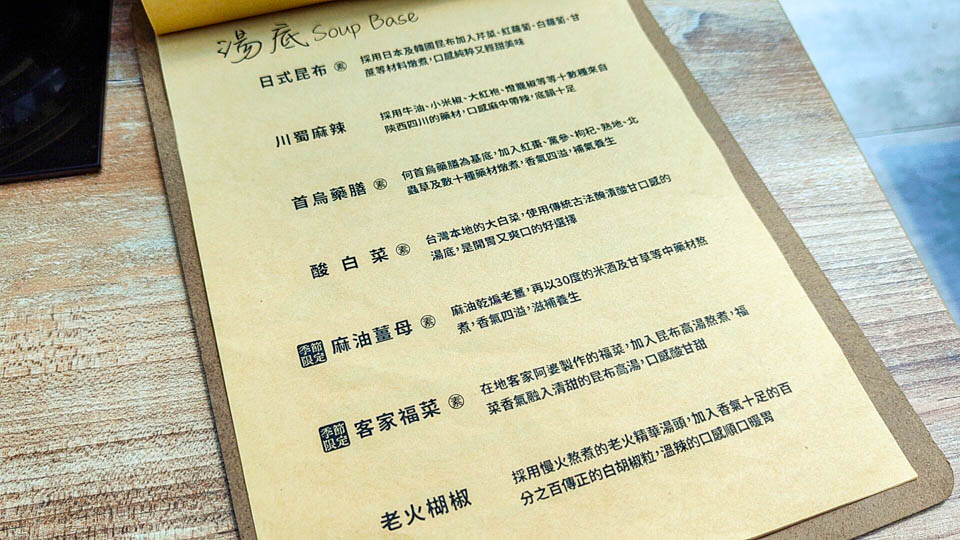 湯底 Soup Base
日式昆布 素
採用日本及韓國昆布加入芹菜、紅蘿蔔、白蘿蔔、甘
蔗等材料燉煮，口感純粹又輕甜美味
川蜀麻辣
採用牛油、小米椒、大紅袍、燈籠椒等等十數種來自
陝西四川的藥材，口感麻中帶辣，底韻十足
首烏藥膳 素
何首烏藥膳為基底，加入紅棗、黨參、枸杞、熟地、北
蟲草及數十種藥材燉煮，香氣四溢，補氣養生
酸白菜 素
台灣本地的大白菜，使用傳統古法醃漬酸甘口感的
湯底，是開胃又爽口的好選擇
季節限定 麻油薑母 素
麻油乾煸老薑，再以30度的米酒及甘草等中藥材熬
煮，香氣四溢，滋補養生
季節限定 客家福菜 素
在地客家阿婆製作的福菜，加入昆布高湯熬煮，福
菜香氣融入清甜的昆布高湯，口感酸甘甜
老火榾椒
採用慢火熬煮的老火精華湯頭，加入香氣十足的百
分之百傳正的白胡椒粒，溫辣的口感順口暖胃